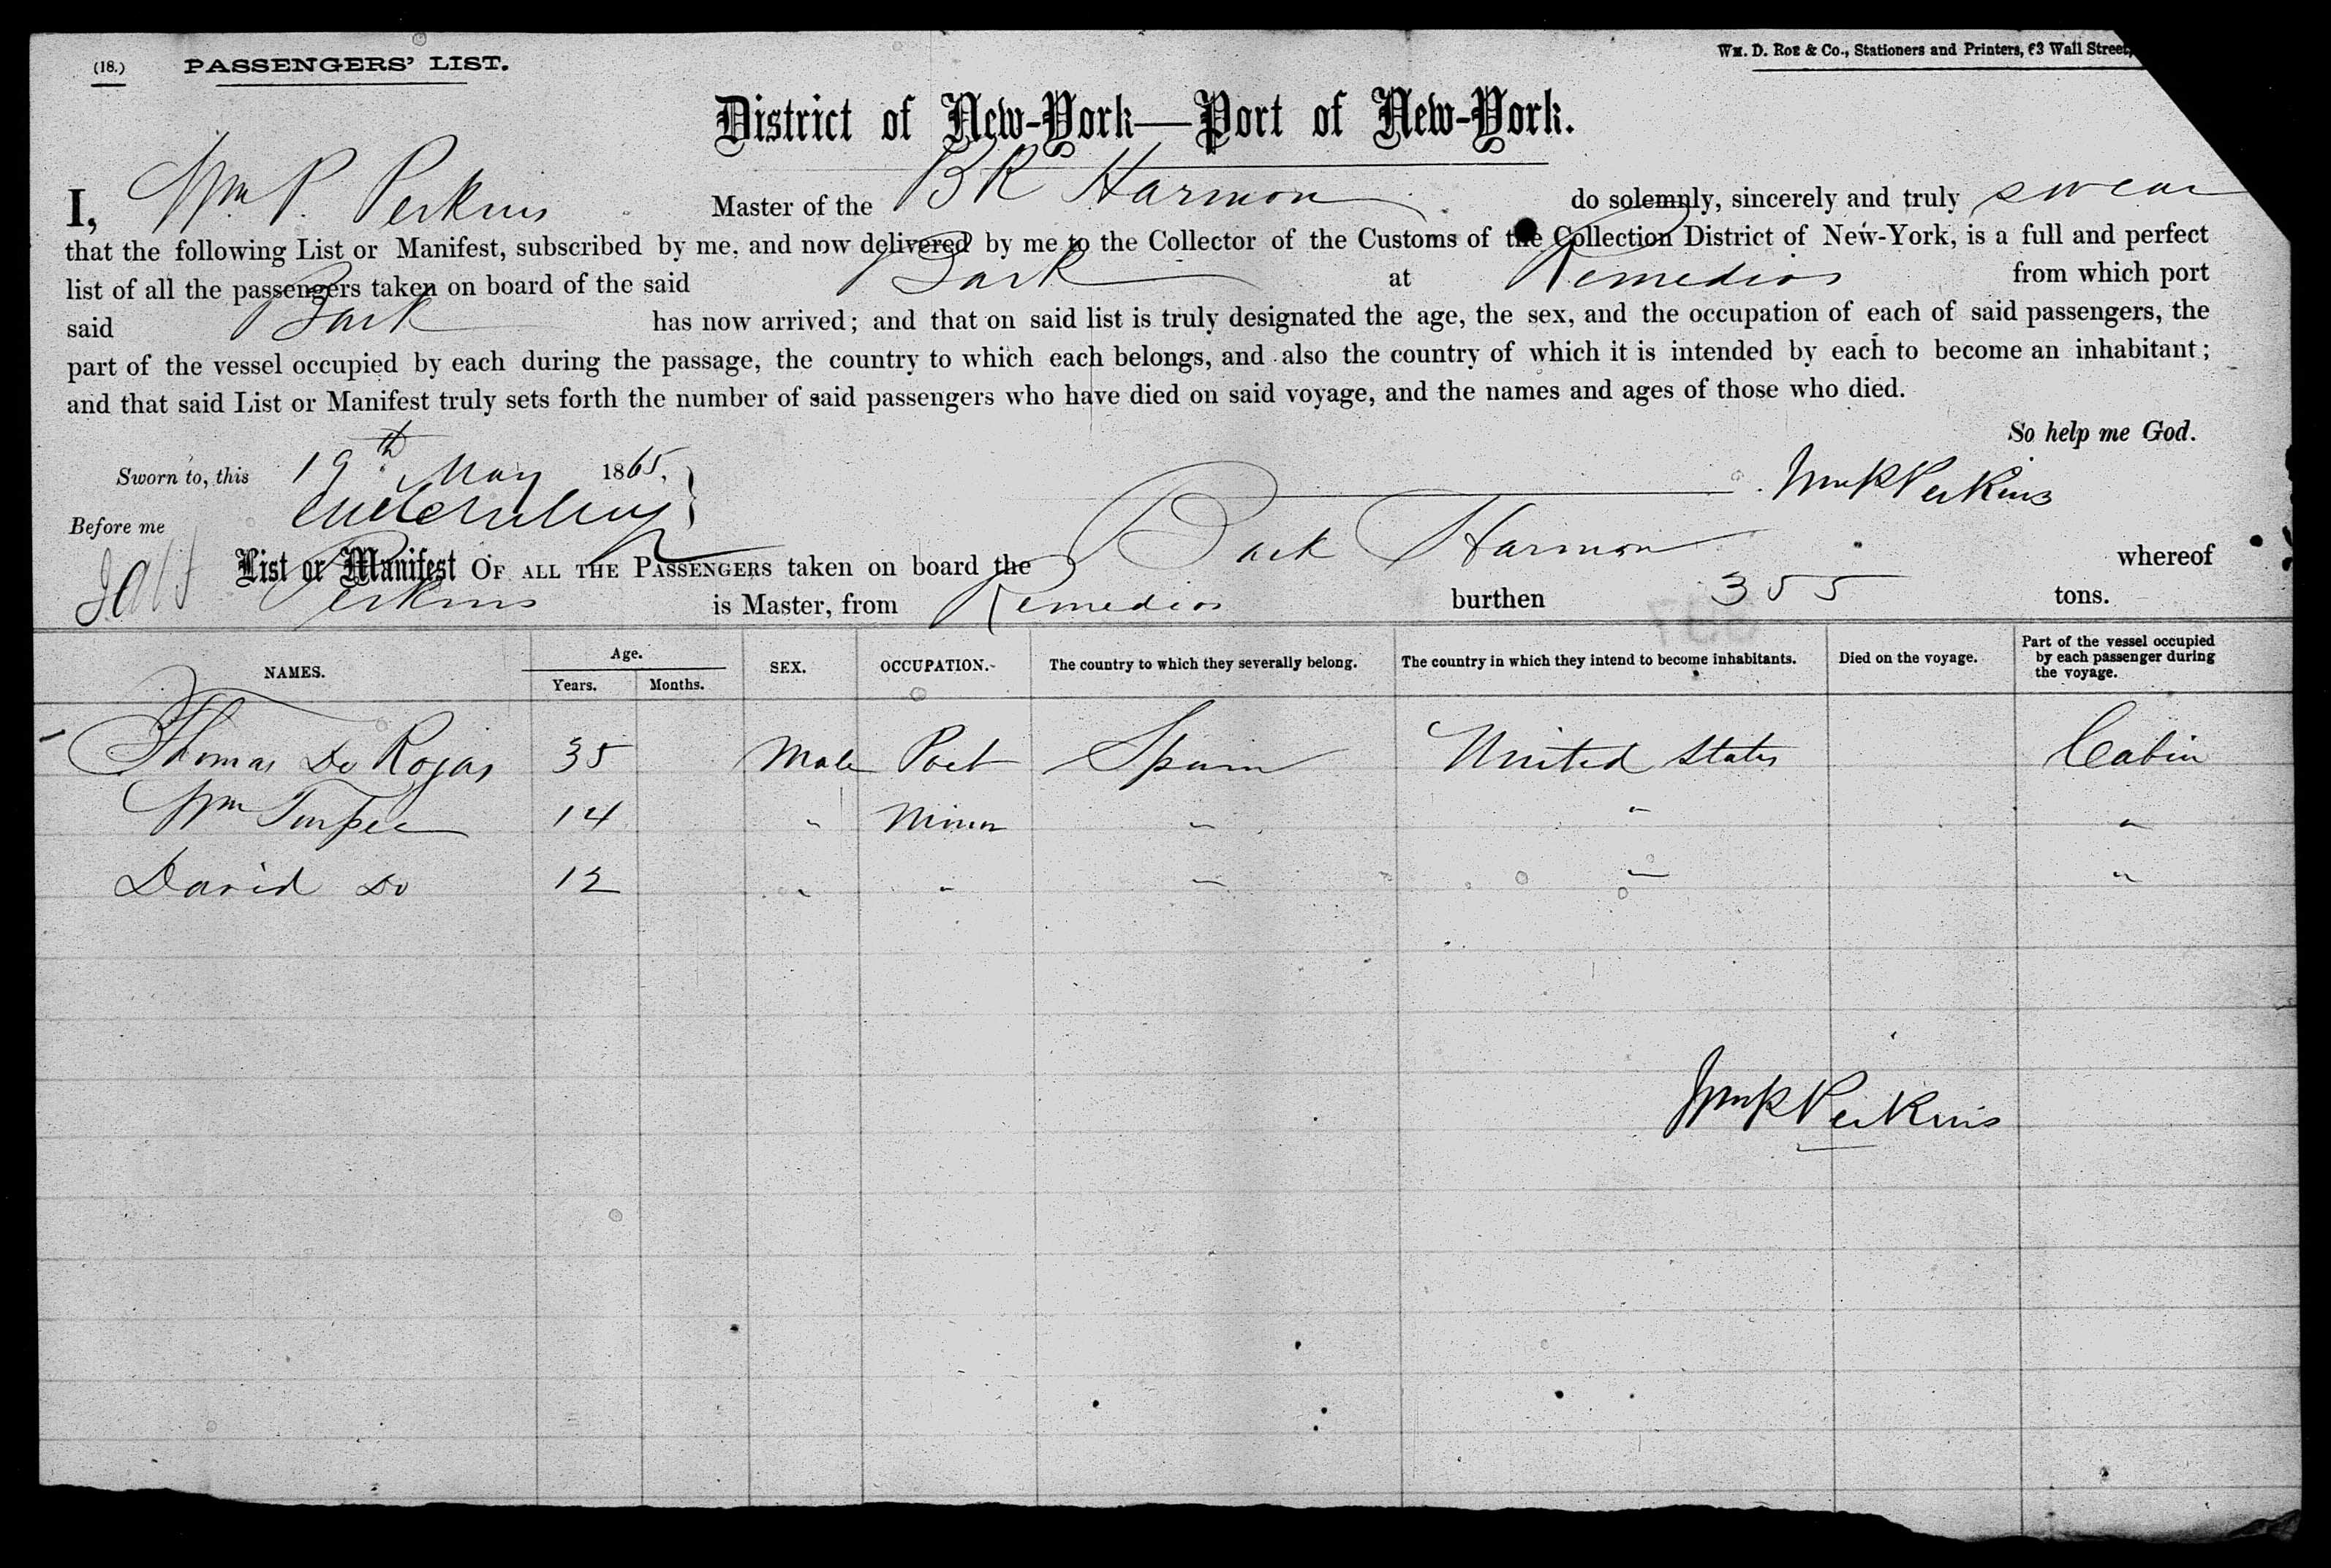 (18.) PASSENGERS' LIST. Wm. D. Roe & Co., Stationers and Printers, 63 Wall Street,
District of New-York—Port of New-York.
I, Wm. P. Perkins Master of the BK Harmon do solemnly, sincerely and truly swear
that the following List or Manifest, subscribed by me, and now delivered by me to the Collector of the Customs of the Collection District of New-York, is a full and perfect
list of all the passengers taken on board of the said Bark at Remedios from which port
said Bark has now arrived; and that on said list is truly designated the age, the sex, and the occupation of each of said passengers, the
part of the vessel occupied by each during the passage, the country to which each belongs, and also the country of which it is intended by each to become an inhabitant;
and that said List or Manifest truly sets forth the number of said passengers who have died on said voyage, and the names and ages of those who died.
So help me God.
Sworn to, this 19th May 1865, Wm P Perkins
Before me
List or Manifest OF ALL THE PASSENGERS taken on board the Bark Harmon whereof
Perkins is Master, from Remedios burthen 355 tons.
NAMES. Age. Years. Months. SEX. OCCUPATION. The country to which they severally belong. The country in which they intend to become inhabitants. Died on the voyage. Part of the vessel occupied by each passenger during the voyage.
Thomas De Rojas 35 Male Poet Spain United States Cabin
Wm 14 " Minor " " "
David Do 12 " " " " "
Wm P Perkins